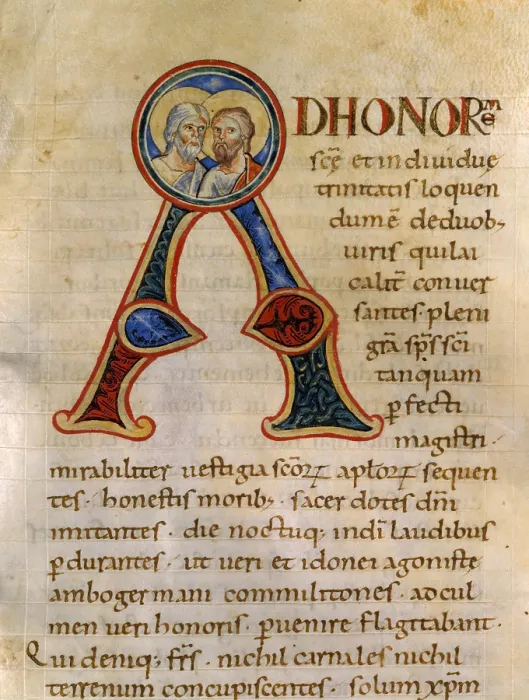 ADHONORē
scę et indiuiduę
trinitatis loquen
dum ē deduob;
uiris qui lai
calit̄ conuer
santes · pleni
grā sp̄s sc̄i
tanquam
ꝑfecti
magistri ·
mirabiliter uestigia scōꝝ aptōꝝ sequen
tes · honestis morib; · sacerdotes dn̄i
imitantes · die noctuq; indī laudibus
ꝑdurantes · ut ueri et idonei agonistę
ambo germani commilitones · adcul
men ueri honoris · ꝑuenire flagitabant ·
Qui deniq; frs̄ · nichil carnales nichil
terrenum concupiscentes · solum xp̄m